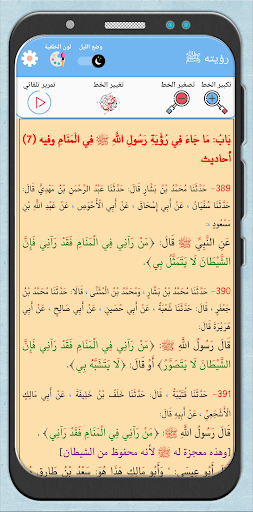 رؤيته ﷺ
وضع الليل
لون الخلفية
تكبير الخط
تصغير الخط
تغيير الخط
تمرير تلقائي
بَابُ: مَا جَاءَ فِي رُؤْيَةِ رَسُولِ اللَّهِ ﷺ فِي الْمَنَامِ وفيه (7)
أحاديث
389- حَدَّثَنَا مُحَمَّدُ بْنُ بَشَّارٍ قَالَ: حَدَّثَنَا عَبْدُ الرَّحْمَنِ بْنُ مَهْدِيٍّ قَالَ:
حَدَّثَنَا سُفْيَانُ ، عَنْ أَبِي إِسْحَاقَ ، عَنْ أَبِي الْأَحْوَصِ ، عَنْ عَبْدِ اللَّهِ بْنِ
مَسْعُودٍ ،
عَنِ النَّبِيِّ ﷺ قَالَ: ﴿مَنْ رَآنِي فِي الْمَنَامِ فَقَدْ رَآنِي فَإِنَّ
الشَّيْطَانَ لَا يَتَمَثَّلُ بِي﴾.
390- حَدَّثَنَا مُحَمَّدُ بْنُ بَشَّارٍ ، وَمُحَمَّدُ بْنُ الْمُثَنَّى ، قَالَا: حَدَّثَنَا مُحَمَّدُ بْنُ
جَعْفَرٍ ، قَالَ: حَدَّثَنَا شُعْبَةُ ، عَنْ أَبِي حَصِينٍ ، عَنْ أَبِي صَالِحٍ ، عَنْ أَبِي
هُرَيْرَةَ قَالَ:
قَالَ رَسُولُ اللَّهِ ﷺ: ﴿مَنْ رَآنِي فِي الْمَنَامِ فَقَدْ رَآنِي فَإِنَّ
الشَّيْطَانَ لَا يَتَصَوَّرُ﴾ أَوْ قَالَ: ﴿لَا يَتَشَبَّهُ بِي﴾.
391- حَدَّثَنَا قُتَيْبَةُ ، قَالَ: حَدَّثَنَا خَلَفُ بْنُ خَلِيفَةَ ، عَنْ أَبِي مَالِكٍ
الْأَشْجَعِيِّ ، عَنْ أَبِيهِ قَالَ:
قَالَ رَسُولُ اللَّهِ ﷺ: ﴿مَنْ رَآنِي فِي الْمَنَامِ فَقَدْ رَآنِي﴾ .
[وهذه معجزة له ﷺ لأنه محفوظ من الشيطان]
قَالَ أَبُو عِيسَى: وَأَبُو مَالِكٍ هَذَا هُوَ: سَعْدُ بْنُ طَارِقِ بْنِ